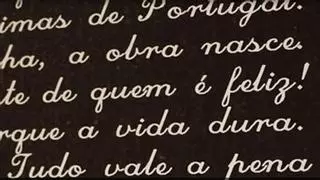 imas de Portugal.
ha, a obra nasce.
te de quem é feliz!
rque a vida dura.
Tudo vale a pena